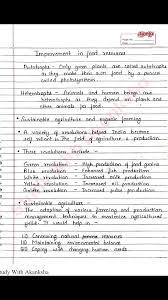 Improvement in food resources
Autotrophs - Only green plants are called autotrophs
as they make their own food by a process
called photosynthesis.
Heterotrophs - Animals and human beings are
heterotrophs as they depend on plants and
other animals for food.
Sustainable agriculture and organic farming
A variety of revolutions helped India become
in the field of agriculture & production
These revolutions include
Green revolution - High production of food grains
Blue revolution - Enhanced fish production
White revolution - Increased milk production
Yellow revolution - Increased oil production
Golden revolution - Increased pulses production
Sustainable agriculture -
The adoption of various farming and production
management techniques to maximize agricultural
yield. It would help in -
(i) Conserving natural resources
(ii) Maintaining environmental balance
(iii) Coping with changing human needs
Study With Akanksha